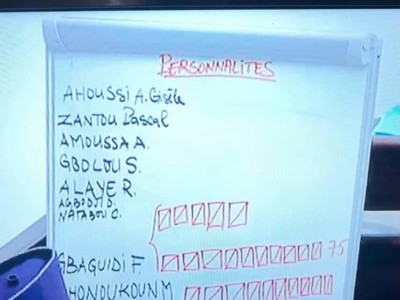 PERSONNALITES
AHOUSSI A. Gisèle
ZANTOU Pascal
AMOUSSA A.
GBOLOU S.
ALAYE R.
AGBODJI D.
NATABOU C.
GBAGUIDI F. 75
HONDUKOUN M